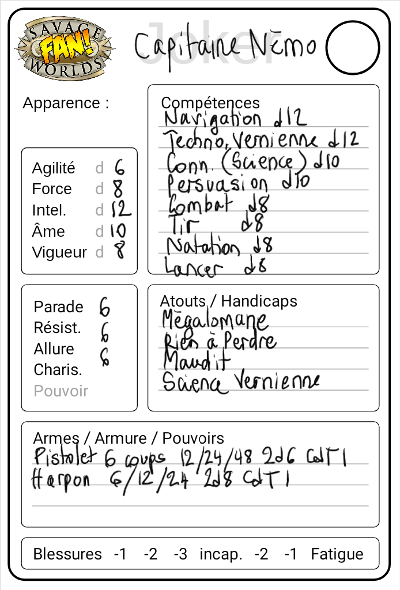 SAVAGE
FAN!
WORLDS
Joker
Capitaine Némo
Apparence :
Agilité d 6
Force d 8
Intel. d 12
Âme d 10
Vigueur d 8
Compétences
Navigation d12
Techno. Vernienne d12
Conn. (Science) d10
Persuasion d10
Combat d8
Tir d8
Natation d8
Lancer d8
Parade 6
Résist. 6
Allure 6
Charis.
Pouvoir
Atouts / Handicaps
Mégalomane
Rien à Perdre
Maudit
Science Vernienne
Armes / Armure / Pouvoirs
Pistolet 6 coups 12/24/48 2d6 CdT 1
Harpon 6/12/24 2d8 CdT 1
Blessures -1 -2 -3 incap. -2 -1 Fatigue